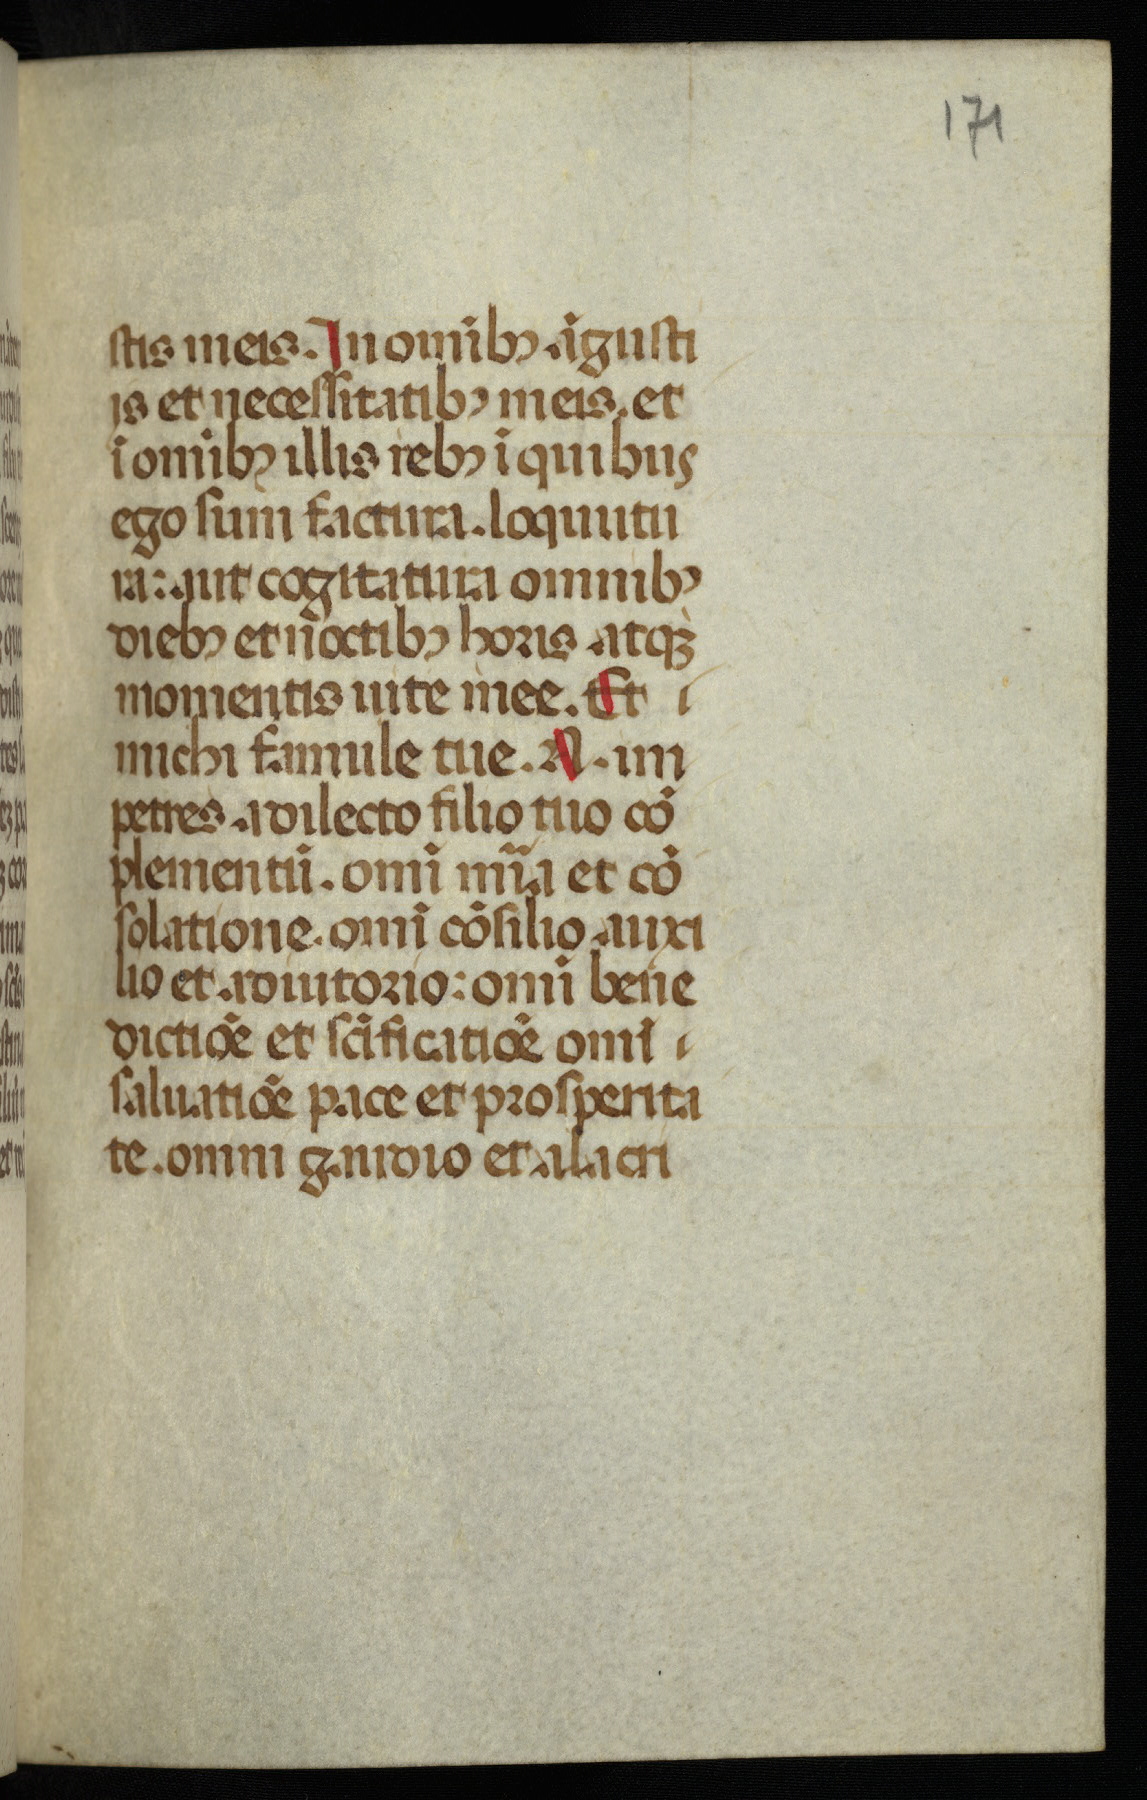 171
stis meis. In omĩbꝫ ãgusti
is et necessitatibꝫ meis. et
ĩ omĩbꝫ illis rebꝫ ĩ quibus
ego sum factura. loquutu
ra: aut cogitatura omnibꝫ
diebꝫ et noctibꝫ horis atqꝫ
momentis uite mee. Et
michi famule tue. N. im
petres a dilecto filio tuo cõ
plementũ. omĩ mĩa et cõ
solatione. omĩ cõsilio auxi
lio et adiutorio: omĩ bene
dictiõe et scĩficatiõe omĩ
saluatiõe pace et prosperita
te. omni gaudio et alacri